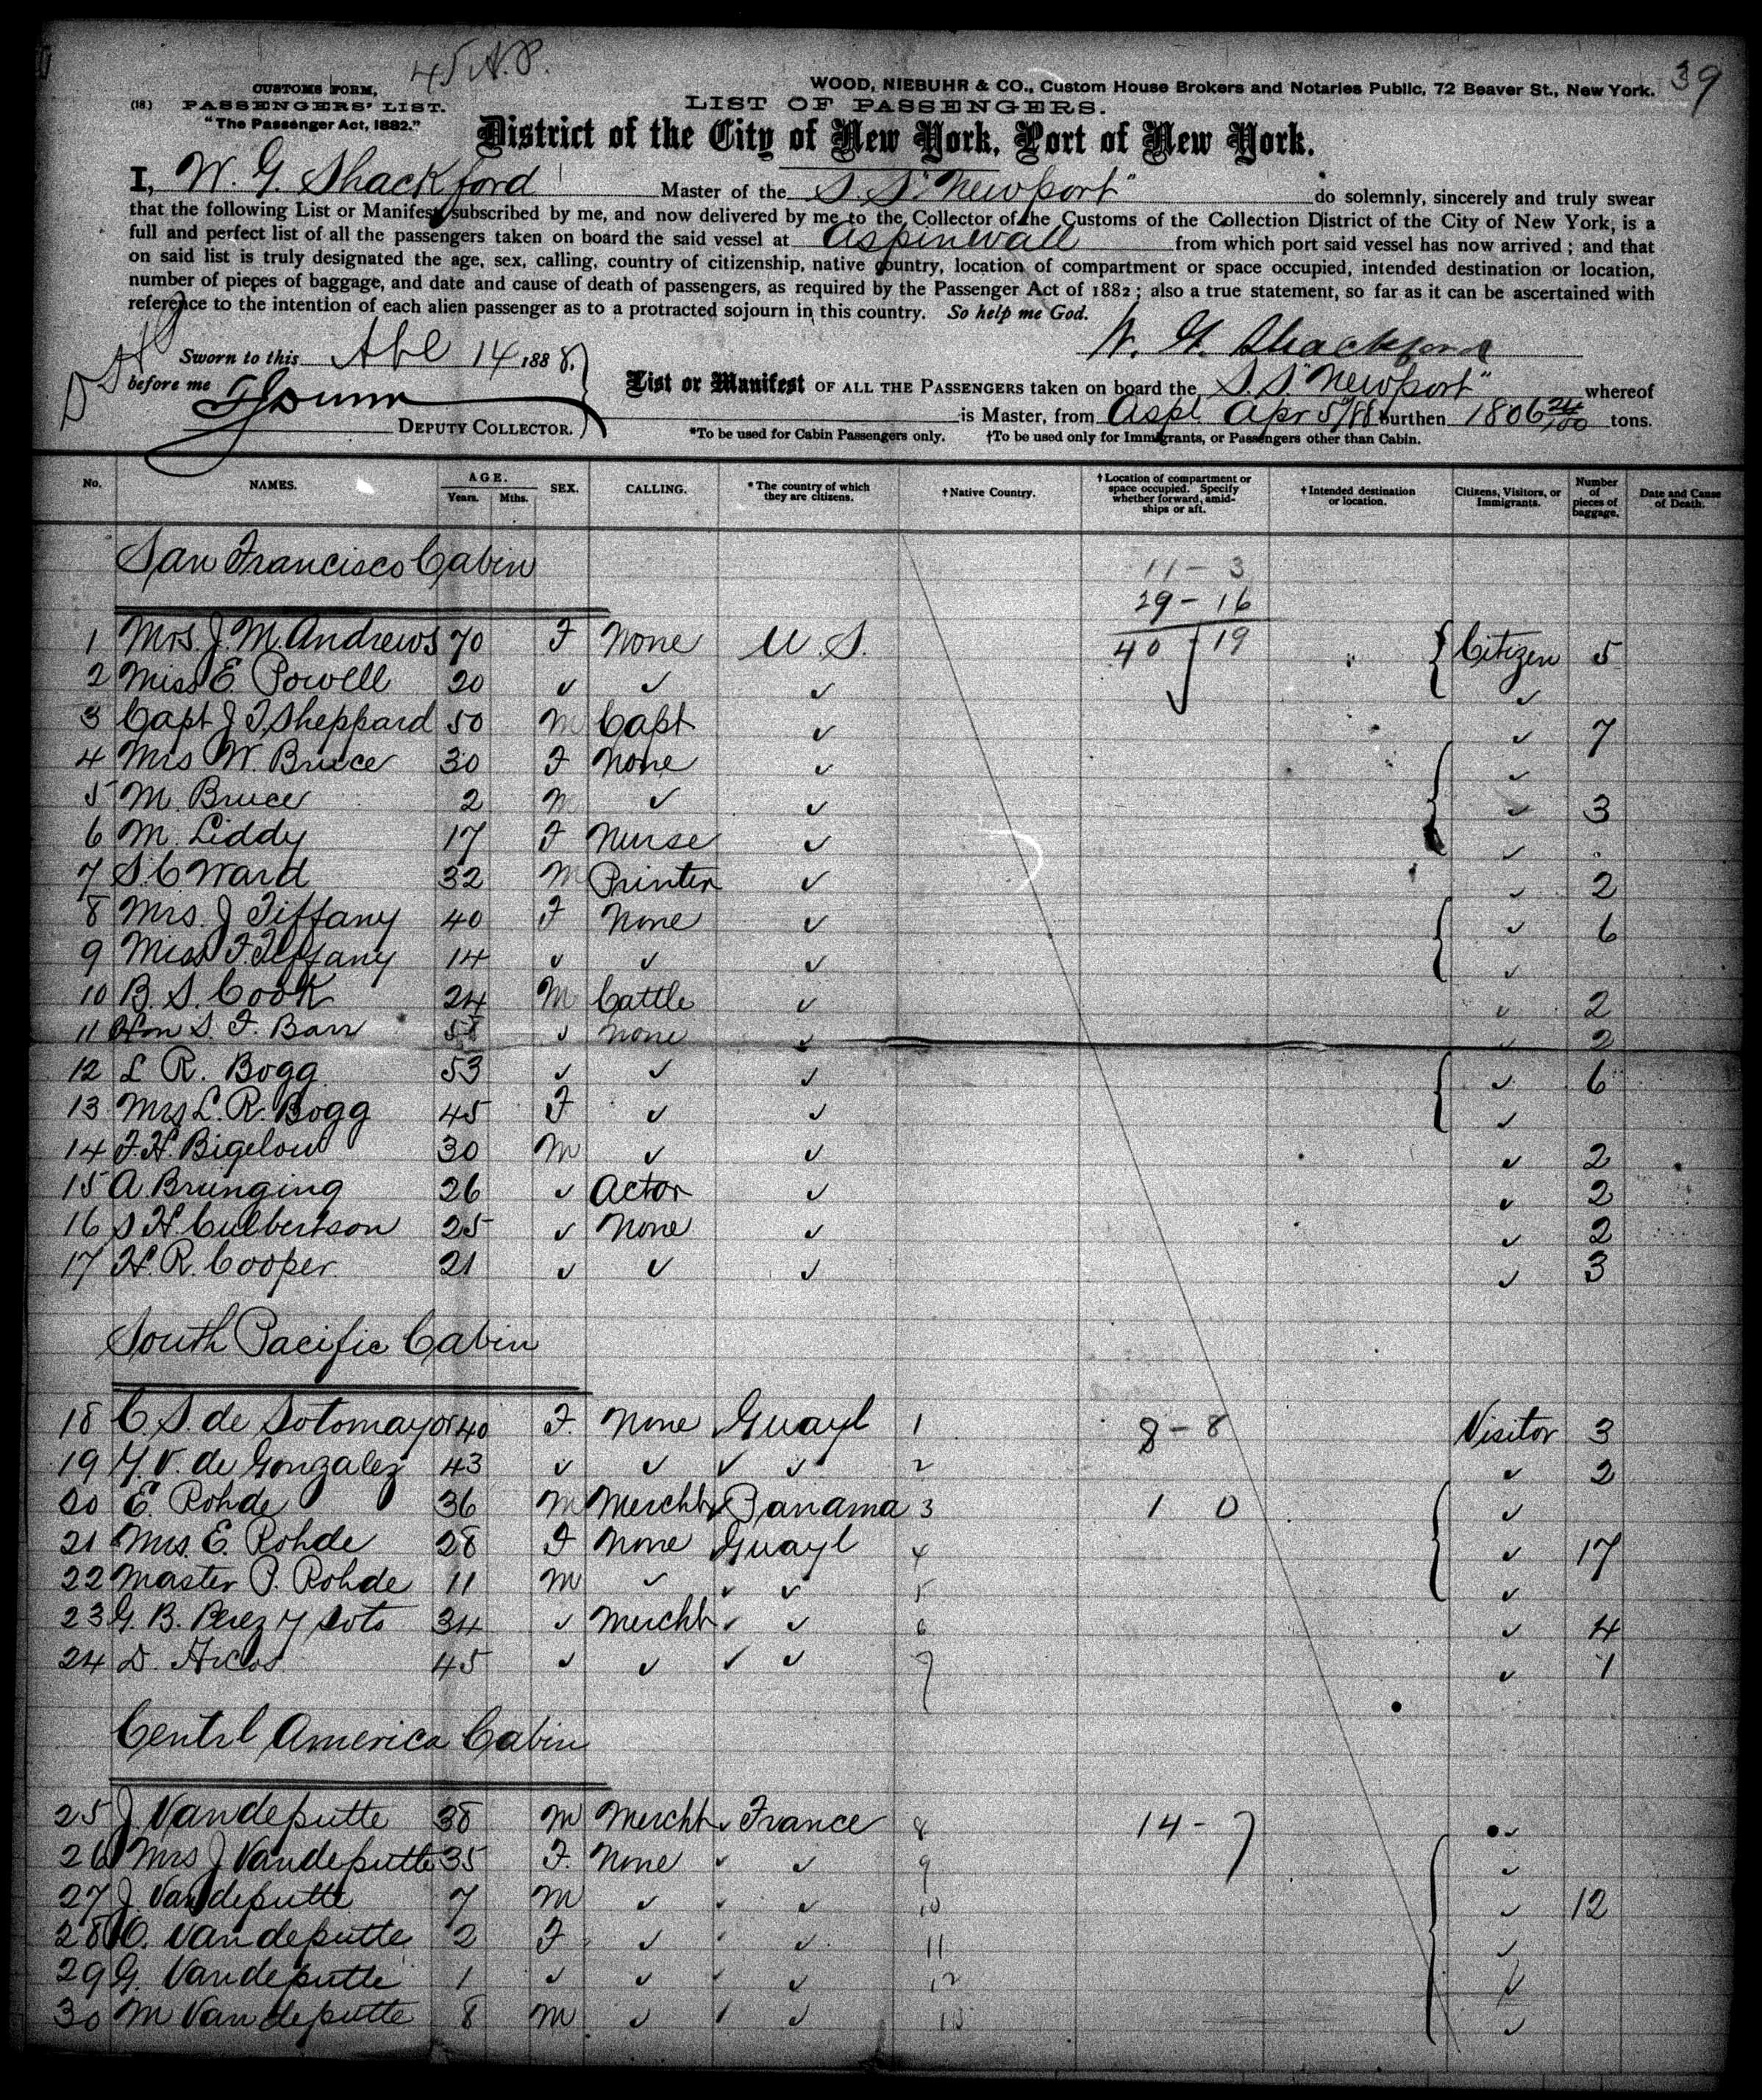 45 A.P.
39
CUSTOMS FORM,
(18) PASSENGERS' LIST.
"The Passenger Act, 1882."
WOOD, NIEBUHR & CO., Custom House Brokers and Notaries Public, 72 Beaver St., New York.
LIST OF PASSENGERS.
District of the City of New York, Port of New York.
I, W. G. Shackford Master of the S. S. "Newport" do solemnly, sincerely and truly swear
that the following List or Manifest, subscribed by me, and now delivered by me to the Collector of the Customs of the Collection District of the City of New York, is a
full and perfect list of all the passengers taken on board the said vessel at Aspinwall from which port said vessel has now arrived; and that
on said list is truly designated the age, sex, calling, country of citizenship, native country, location of compartment or space occupied, intended destination or location,
number of pieces of baggage, and date and cause of death of passengers, as required by the Passenger Act of 1882; also a true statement, so far as it can be ascertained with
reference to the intention of each alien passenger as to a protracted sojourn in this country. So help me God.
W. G. Shackford
Sworn to this Apl 14 1888.
before me
DEPUTY COLLECTOR.
List or Manifest OF ALL THE PASSENGERS taken on board the S. S. "Newport" whereof
is Master, from Aspl. Apr 5/88 burthen 1806 24/100 tons.
*To be used for Cabin Passengers only. †To be used only for Immigrants, or Passengers other than Cabin.
No. NAMES. AGE. Years. Mths. SEX. CALLING. *The country of which they are citizens. †Native Country. †Location of compartment or space occupied. Specify whether forward, amidships or aft. †Intended destination or location. Citizens, Visitors, or Immigrants. Number of pieces of baggage. Date and Cause of Death.
San Francisco Cabin
11 - 3
29 - 16
40 19
1 Mrs. J. M. Andrews 70 F None U. S. Citizen 5
2 Miss E. Powell 20 ✓ ✓ ✓ ✓
3 Capt J. T. Sheppard 50 M Capt ✓ ✓ 7
4 Mrs W. Bruce 30 F None ✓ ✓
5 M. Bruce 2 M ✓ ✓ ✓ 3
6 M. Liddy 17 F Nurse ✓ ✓
7 S. C Ward 32 M Printer ✓ ✓ 2
8 Mrs. J Tiffany 40 F None ✓ ✓ 6
9 Miss F. Tiffany 14 ✓ ✓ ✓ ✓
10 B. S. Cook 24 M Cattle ✓ ✓ 2
11 Hon S. F. Barr 58 ✓ None ✓ ✓ 2
12 L R. Bogg 53 ✓ ✓ ✓ ✓ 6
13 Mrs L. R. Bogg 45 F ✓ ✓ ✓
14 F. H. Bigelow 30 M ✓ ✓ ✓ 2
15 A. Brunging 26 ✓ Actor ✓ ✓ 2
16 S H. Culbertson 25 ✓ None ✓ ✓ 2
17 H. R. Cooper 21 ✓ ✓ ✓ ✓ 3
South Pacific Cabin
18 C. S. de Sotomayor 40 F. None Guayl 1 8 - 8 Visitor 3
19 Y. V. de Gonzalez 43 ✓ ✓ ✓ ✓ 2 ✓ 2
20 E. Rohde 36 M Mercht ✓ Panama 3 1 0 ✓
21 Mrs. E. Rohde 28 F None Guayl 4 ✓ 17
22 Master P. Rohde 11 M ✓ ✓ ✓ 5 ✓
23 G. B. Perez y Soto 34 ✓ Mercht ✓ ✓ 6 ✓ 4
24 D. Arcos 45 ✓ ✓ ✓ ✓ 7 ✓ 1
Centrl America Cabin
25 J Vandeputte 38 M Mercht ✓ France 8 14 - 7 ✓
26 Mrs J Vandeputte 35 F. None ✓ ✓ 9 ✓
27 J. Vandeputte 7 M ✓ ✓ ✓ 10 ✓ 12
28 O. Vandeputte 2 F ✓ ✓ ✓ 11 ✓
29 G. Vandeputte 1 ✓ ✓ ✓ ✓ 12 ✓
30 M Vandeputte 8 M ✓ ✓ ✓ 13 ✓